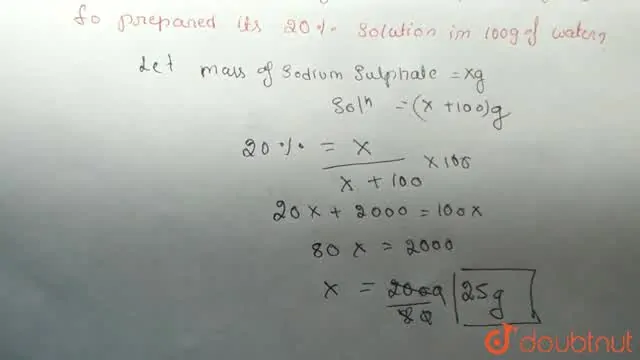 to prepared its 20% solution in 100g of water?
Let mass of Sodium Sulphate = xg
Solⁿ = (x + 100)g
20% = x / x + 100 × 100
20x + 2000 = 100x
80 x = 2000
x = 2000 / 80 25g
doubtnut